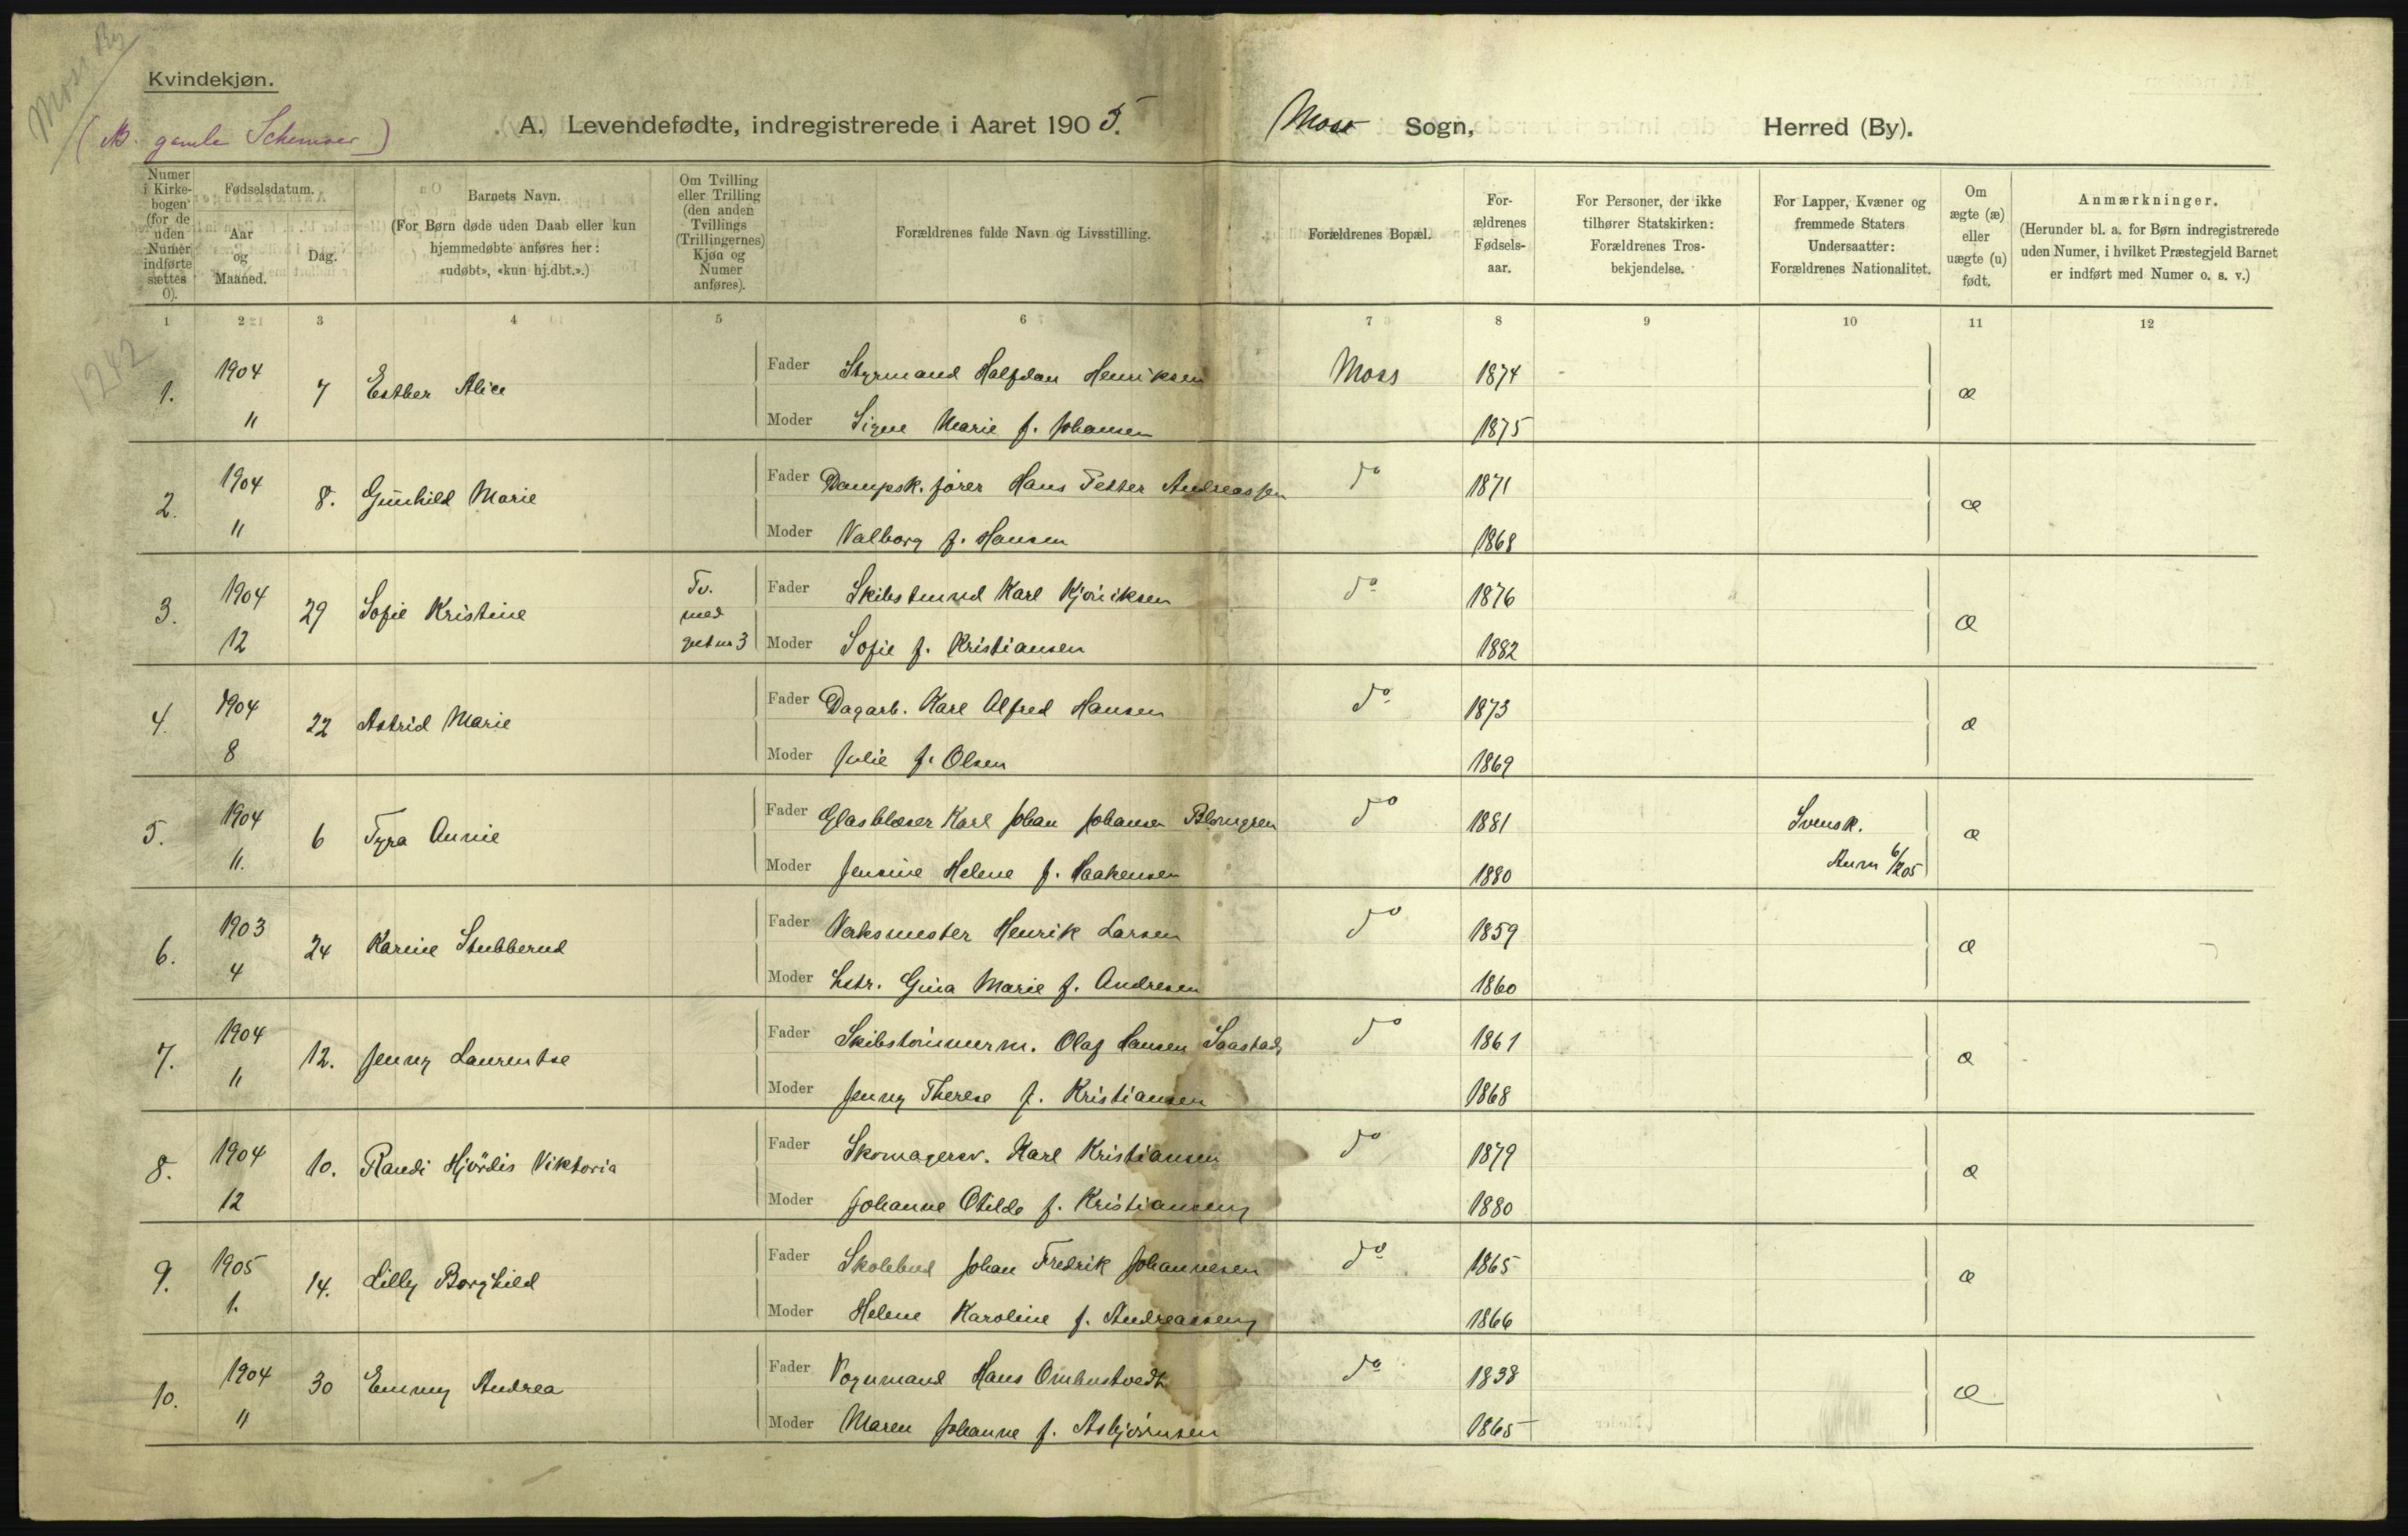 Moss By
Kvindekjøn.
(NB. gamle Schemaer)
A. Levendefødte, indregistrerede i Aaret 1905.
Moss Sogn, Herred (By).
Numer i Kirkebogen (for de uden Numer indførte sættes 0).
Fødselsdatum.
Aar og Maaned.
Dag.
Barnets Navn.
(For Børn døde uden Daab eller kun hjemmedøbte anføres her: «udøbt», «kun hj.dbt.».)
Om Tvilling eller Trilling (den anden Tvillings (Trillingernes) Kjøn og Numer anføres).
Forældrenes fulde Navn og Livsstilling.
Forældrenes Bopæl.
Forældrenes Fødselsaar.
For Personer, der ikke tilhører Statskirken: Forældrenes Trosbekjendelse.
For Lapper, Kvæner og fremmede Staters Undersaatter: Forældrenes Nationalitet.
Om ægte (æ) eller uægte (u) født.
Anmærkninger.
(Herunder bl. a. for Børn indregistrerede uden Numer, i hvilket Præstegjeld Barnet er indført med Numer o. s. v.)
1 2 3 4 5 6 7 8 9 10 11 12
1242
1. 1904 7 Esther Alice Fader Styrmand Halfdan Henriksen Moss 1874 æ
11 Moder Signe Marie f. Johansen 1875
2. 1904 8. Gunhild Marie Fader Dampsk.fører Hans Petter Andreassen do 1871 æ
11 Moder Valborg f. Hansen 1868
3. 1904 29 Sofie Kristine Tv. med gut nr 3 Fader Karl do 1876 æ
12 Moder Sofie f. Kristiansen 1882
4. 1904 22 Astrid Marie Fader Dagarb. Karl Alfred Hansen do 1873 æ
8 Moder Julie f. Olsen 1869
5. 1904 6 Tyra Annie Fader Glasblæser Karl Johan Johansen Blomgren do 1881 Svensk. æ
11. Moder Jensine Helene f. Haakensen 1880 6/12 05
6. 1903 24 Karine Stubberud Fader Verksmester Henrik Larsen do 1859 æ
4 Moder Hstr. Gina Marie f. Andresen 1860
7. 1904 12. Jenny Laurentse Fader Skibstømmerm. Olaf Hansen Saastad do 1861 æ
11 Moder Jenny Therese f. Kristiansen 1868
8. 1904 10. Randi Hjördis Viktoria Fader Skomagersv. Karl Kristiansen do 1879 æ
12 Moder Johanne Otilde f. Kristiansen 1880
9. 1905 14. Lilly Borghild Fader Skolebud Johan Fredrik Johannesen do 1865 æ
1. Moder Helene Karoline f. Andreassen 1866
10. 1904 30 Emmy Andrea Fader Vognmand Hans do 1838 æ
11 Moder Maren Johanne f. Asbjørnsen 1865